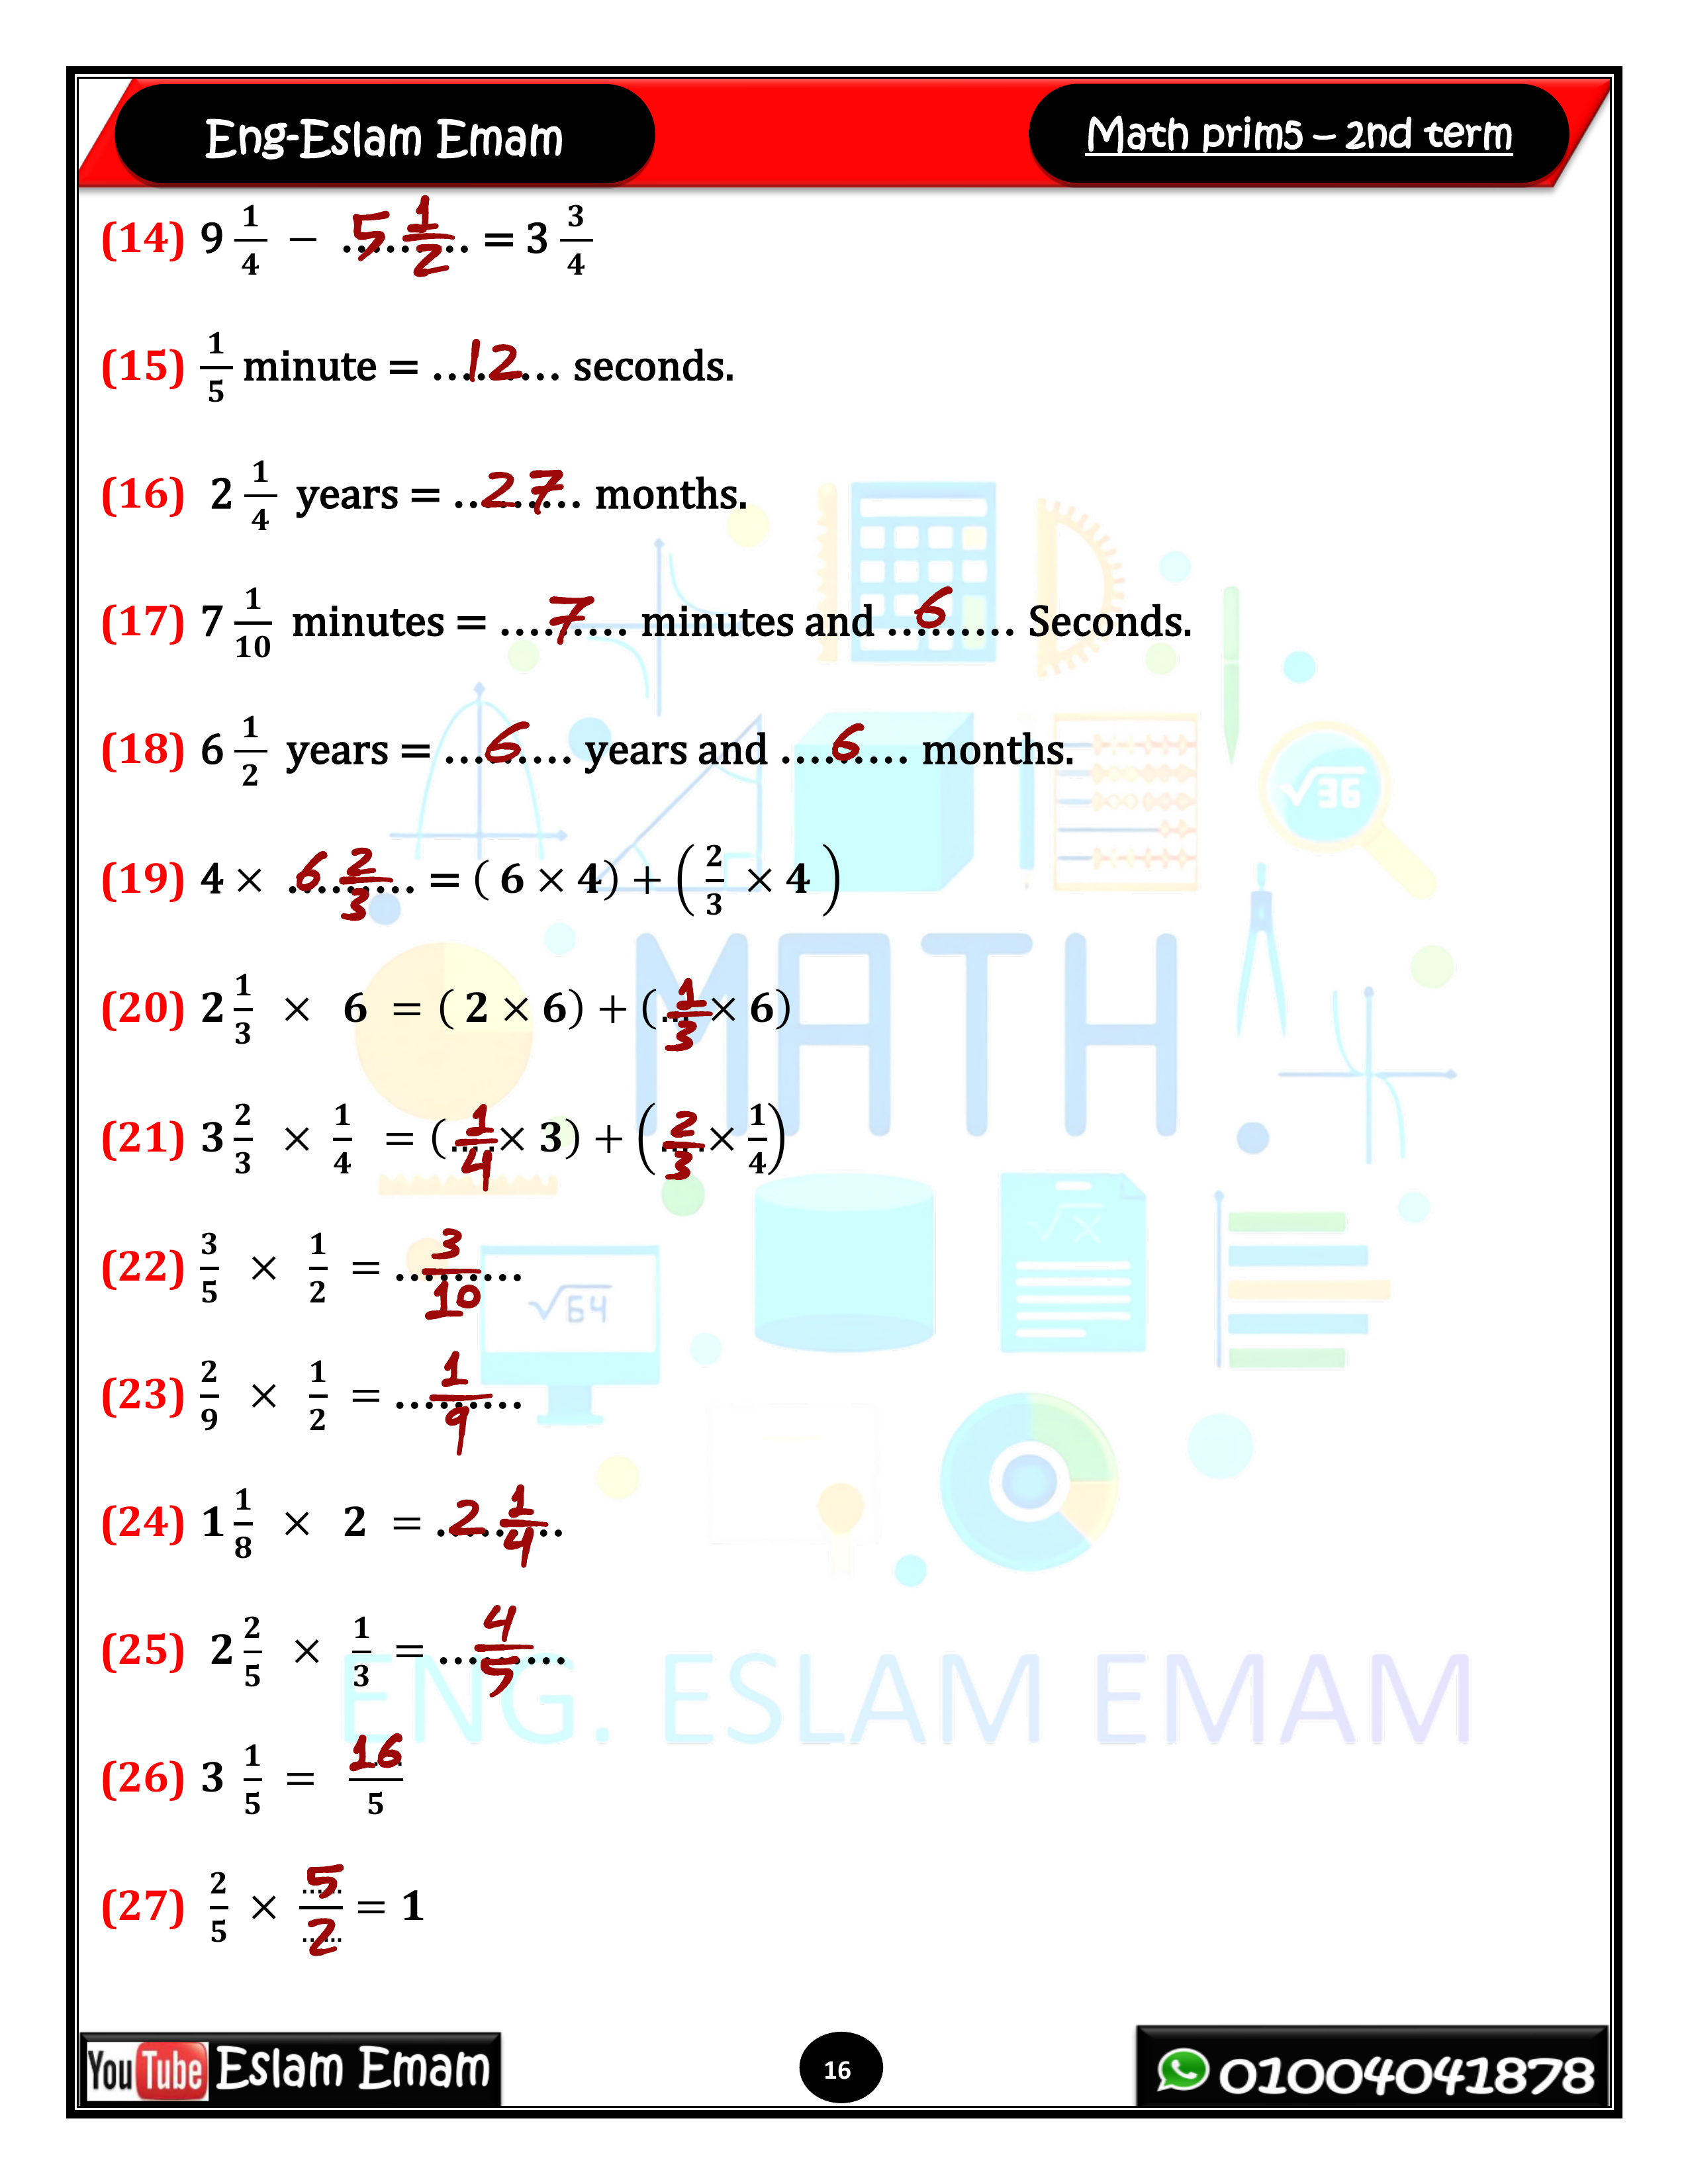 Eng-Eslam Emam
Math prim5 – 2nd term
(14) 9 1/4 − ...5 1/2... = 3 3/4
(15) 1/5 minute = ...12... seconds.
(16) 2 1/4 years = ...27... months.
(17) 7 1/10 minutes = ...7... minutes and ...6... Seconds.
(18) 6 1/2 years = ...6... years and ...6... months.
(19) 4 × ...6 2/3... = ( 6 × 4) + ( 2/3 × 4 )
(20) 2 1/3 × 6 = ( 2 × 6) + (...1/3 × 6)
(21) 3 2/3 × 1/4 = (...1/4 × 3) + (...2/3 × 1/4)
(22) 3/5 × 1/2 = ...3/10...
(23) 2/9 × 1/2 = ...1/9...
(24) 1 1/8 × 2 = ...2 1/4...
(25) 2 2/5 × 1/3 = ...4/5...
(26) 3 1/5 = 16/5
(27) 2/5 × 5/2 = 1
√36
MATH
√x
√64
ENG. ESLAM EMAM
YouTube Eslam Emam
16
01004041878